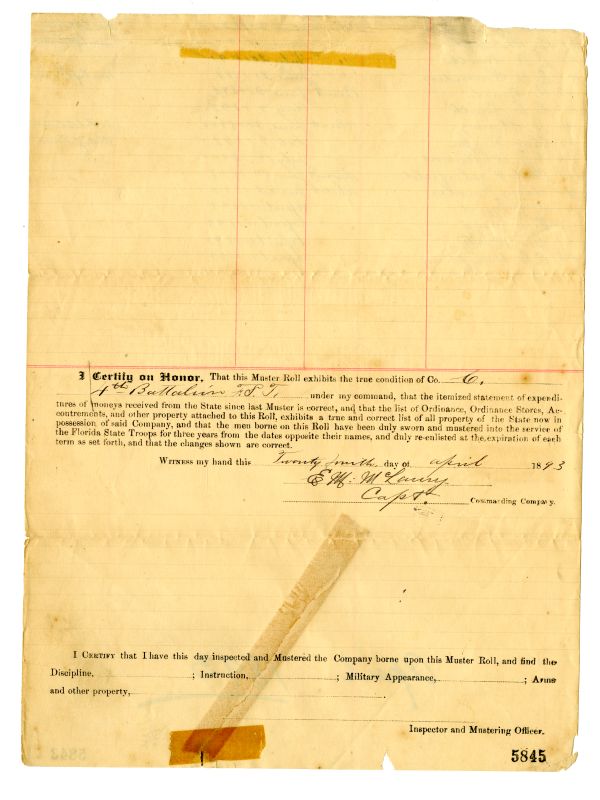 I Certify on Honor, That this Muster Roll exhibits the true condition of Co. C.
4th Battalion F.S.T. under my command, that the itemized statement of expendi-
tures of moneys received from the State since last Muster is correct, and that the list of Ordinance, Ordinance Stores, Ac-
coutrements, and other property attached to this Roll, exhibits a true and correct list of all property of the State now in
possession of said Company, and that the men borne on this Roll have been duly sworn and mustered into the service of
the Florida State Troops for three years from the dates opposite their names, and duly re-enlisted at the expiration of each
term as set forth, and that the changes shown are correct.
WITNESS my hand this Twenty ninth day of april 1893
E. M. McLaury
Capt. Commanding Company.
I CERTIFY that I have this day inspected and Mustered the Company borne upon this Muster Roll, and find the
Discipline, ; Instruction, ; Military Appearance, ; Arms
and other property,
Inspector and Mustering Officer.
5845